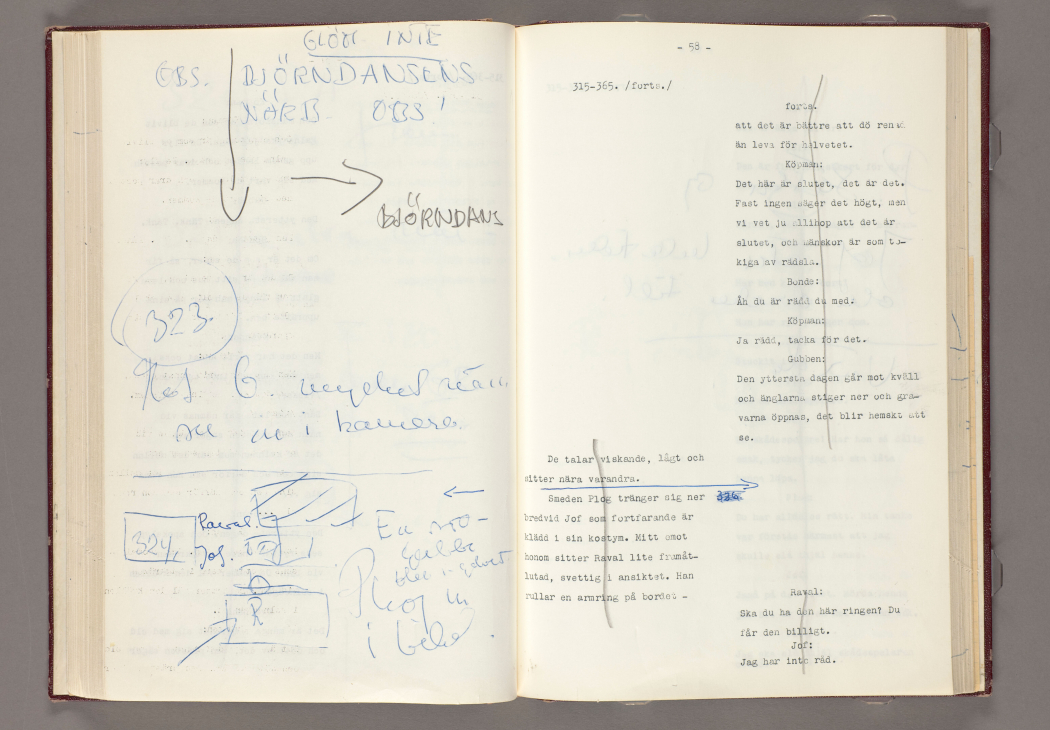 GLÖM INTE
OBS. BJÖRNDANSENS
NÄRB OBS!
BJÖRNDANS
323.
mycket
i kamera.
324.
Raval.
Jof.
En
Plog in
i bild.
R
- 58 -
315-365. /forts./
forts.
att det är bättre att dö rensd
än leva för helvetet.
Köpman:
Det här är slutet, det är det.
Fast ingen säger det högt, men
vi vet ju allihop att det är
slutet, och mänskor är som to-
kiga av rädsla.
Bonde:
Åh du är rädd du med.
Köpman:
Ja rädd, tacka för det.
Gubben:
Den yttersta dagen går mot kväll
och änglarna stiger ner och gra-
varna öppnas, det blir hemskt att
se.
De talar viskande, lågt och
sitter nära varandra.
Smeden Plog tränger sig ner 324
bredvid Jof som fortfarande är
klädd i sin kostym. Mitt emot
honom sitter Raval lite framåt-
lutad, svettig i ansiktet. Han
rullar en armring på bordet -
Raval:
Ska du ha den här ringen? Du
får den billigt.
Jof:
Jag har inte råd.